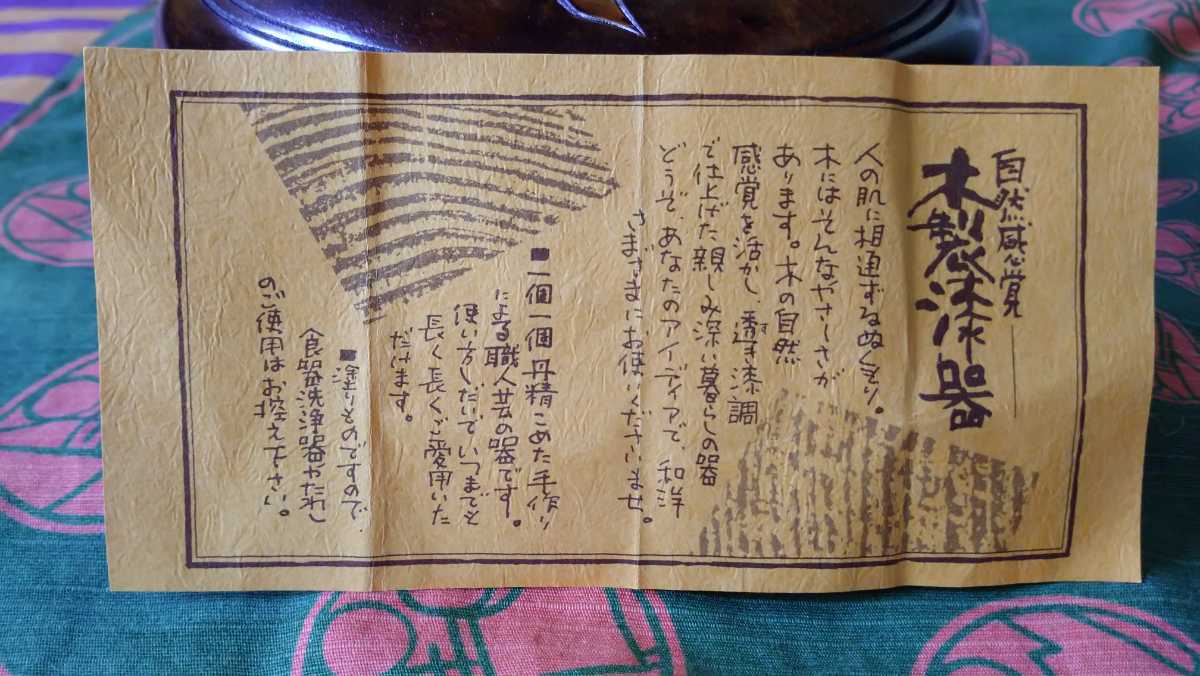 自然感覚
木製漆器
人の肌に相通ずるぬくもり。
木にはそんなやさしさが
あります。木の自然
感覚を活かし、透き漆調
で仕上げた親しみ深い暮らしの器
どうぞ、あなたのアイディアで、和洋
さまざまにお使いくださいませ。
■一個一個丹精こめた手作り
による職人芸の器です。
使い方しだいでいつまでも
長く長くご愛用いた
だけます。
■塗りものですので
食器洗浄器やたわし
のご使用はお控え下さい。